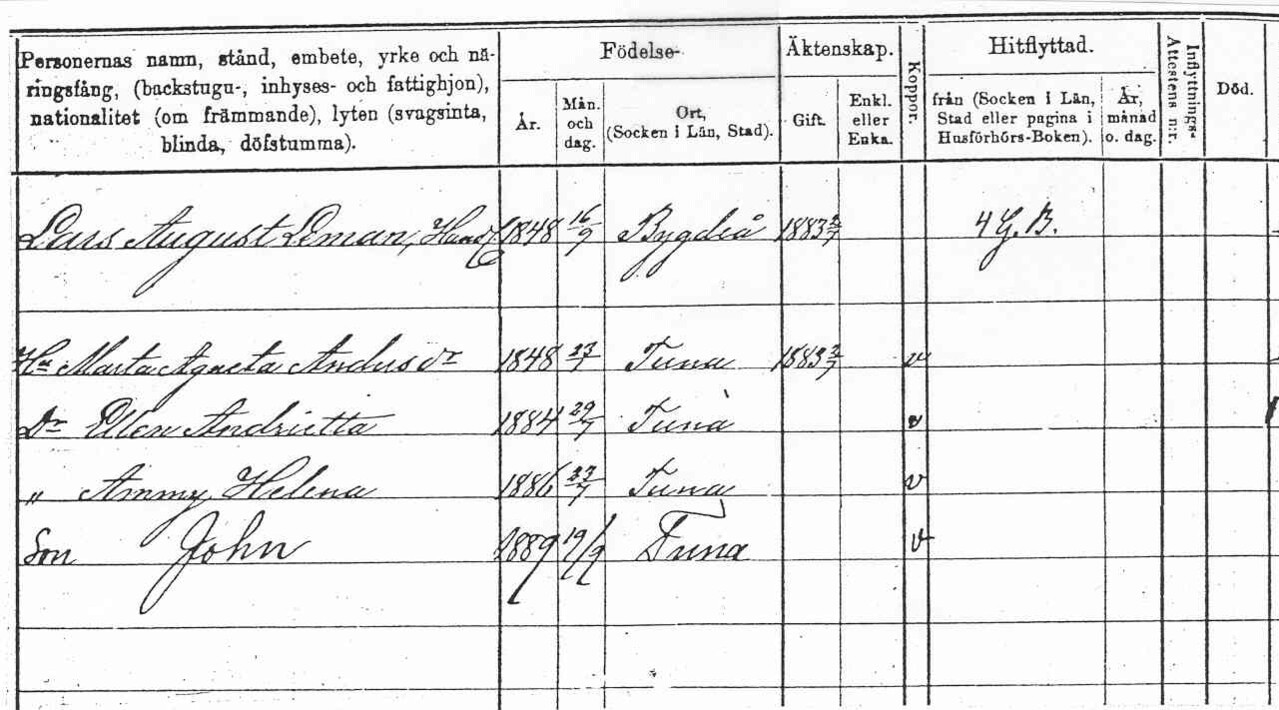 Personernas namn, stånd, embete, yrke och nä-
ringsfång, (backstugu-, inhyses- och fattighjon),
nationalitet (om främmande), lyten (svagsinta,
blinda, döfstumma).
Födelse-
År.
Mån.
och
dag.
Ort,
(Socken i Län, Stad).
Äktenskap.
Gift.
Enkl.
eller
Enka.
Koppor.
Hitflyttad.
från (Socken i Län,
Stad eller pagina i
Husförhörs-Boken).
År,
månad
o. dag.
Inflyttnings-
Attestens n:r.
Död.
Lars August Leman, 1848 16/9 Bygdeå 1883 2/7 4 G. B.
Hu Marta Agneta Andersdr 1848 Tuna 1883 2/7 v
Dr Ellen Andrietta 1884 29/7 Tuna v
" Ammy Helena 1886 Tuna v
Son John 1889 19/9 Tuna v